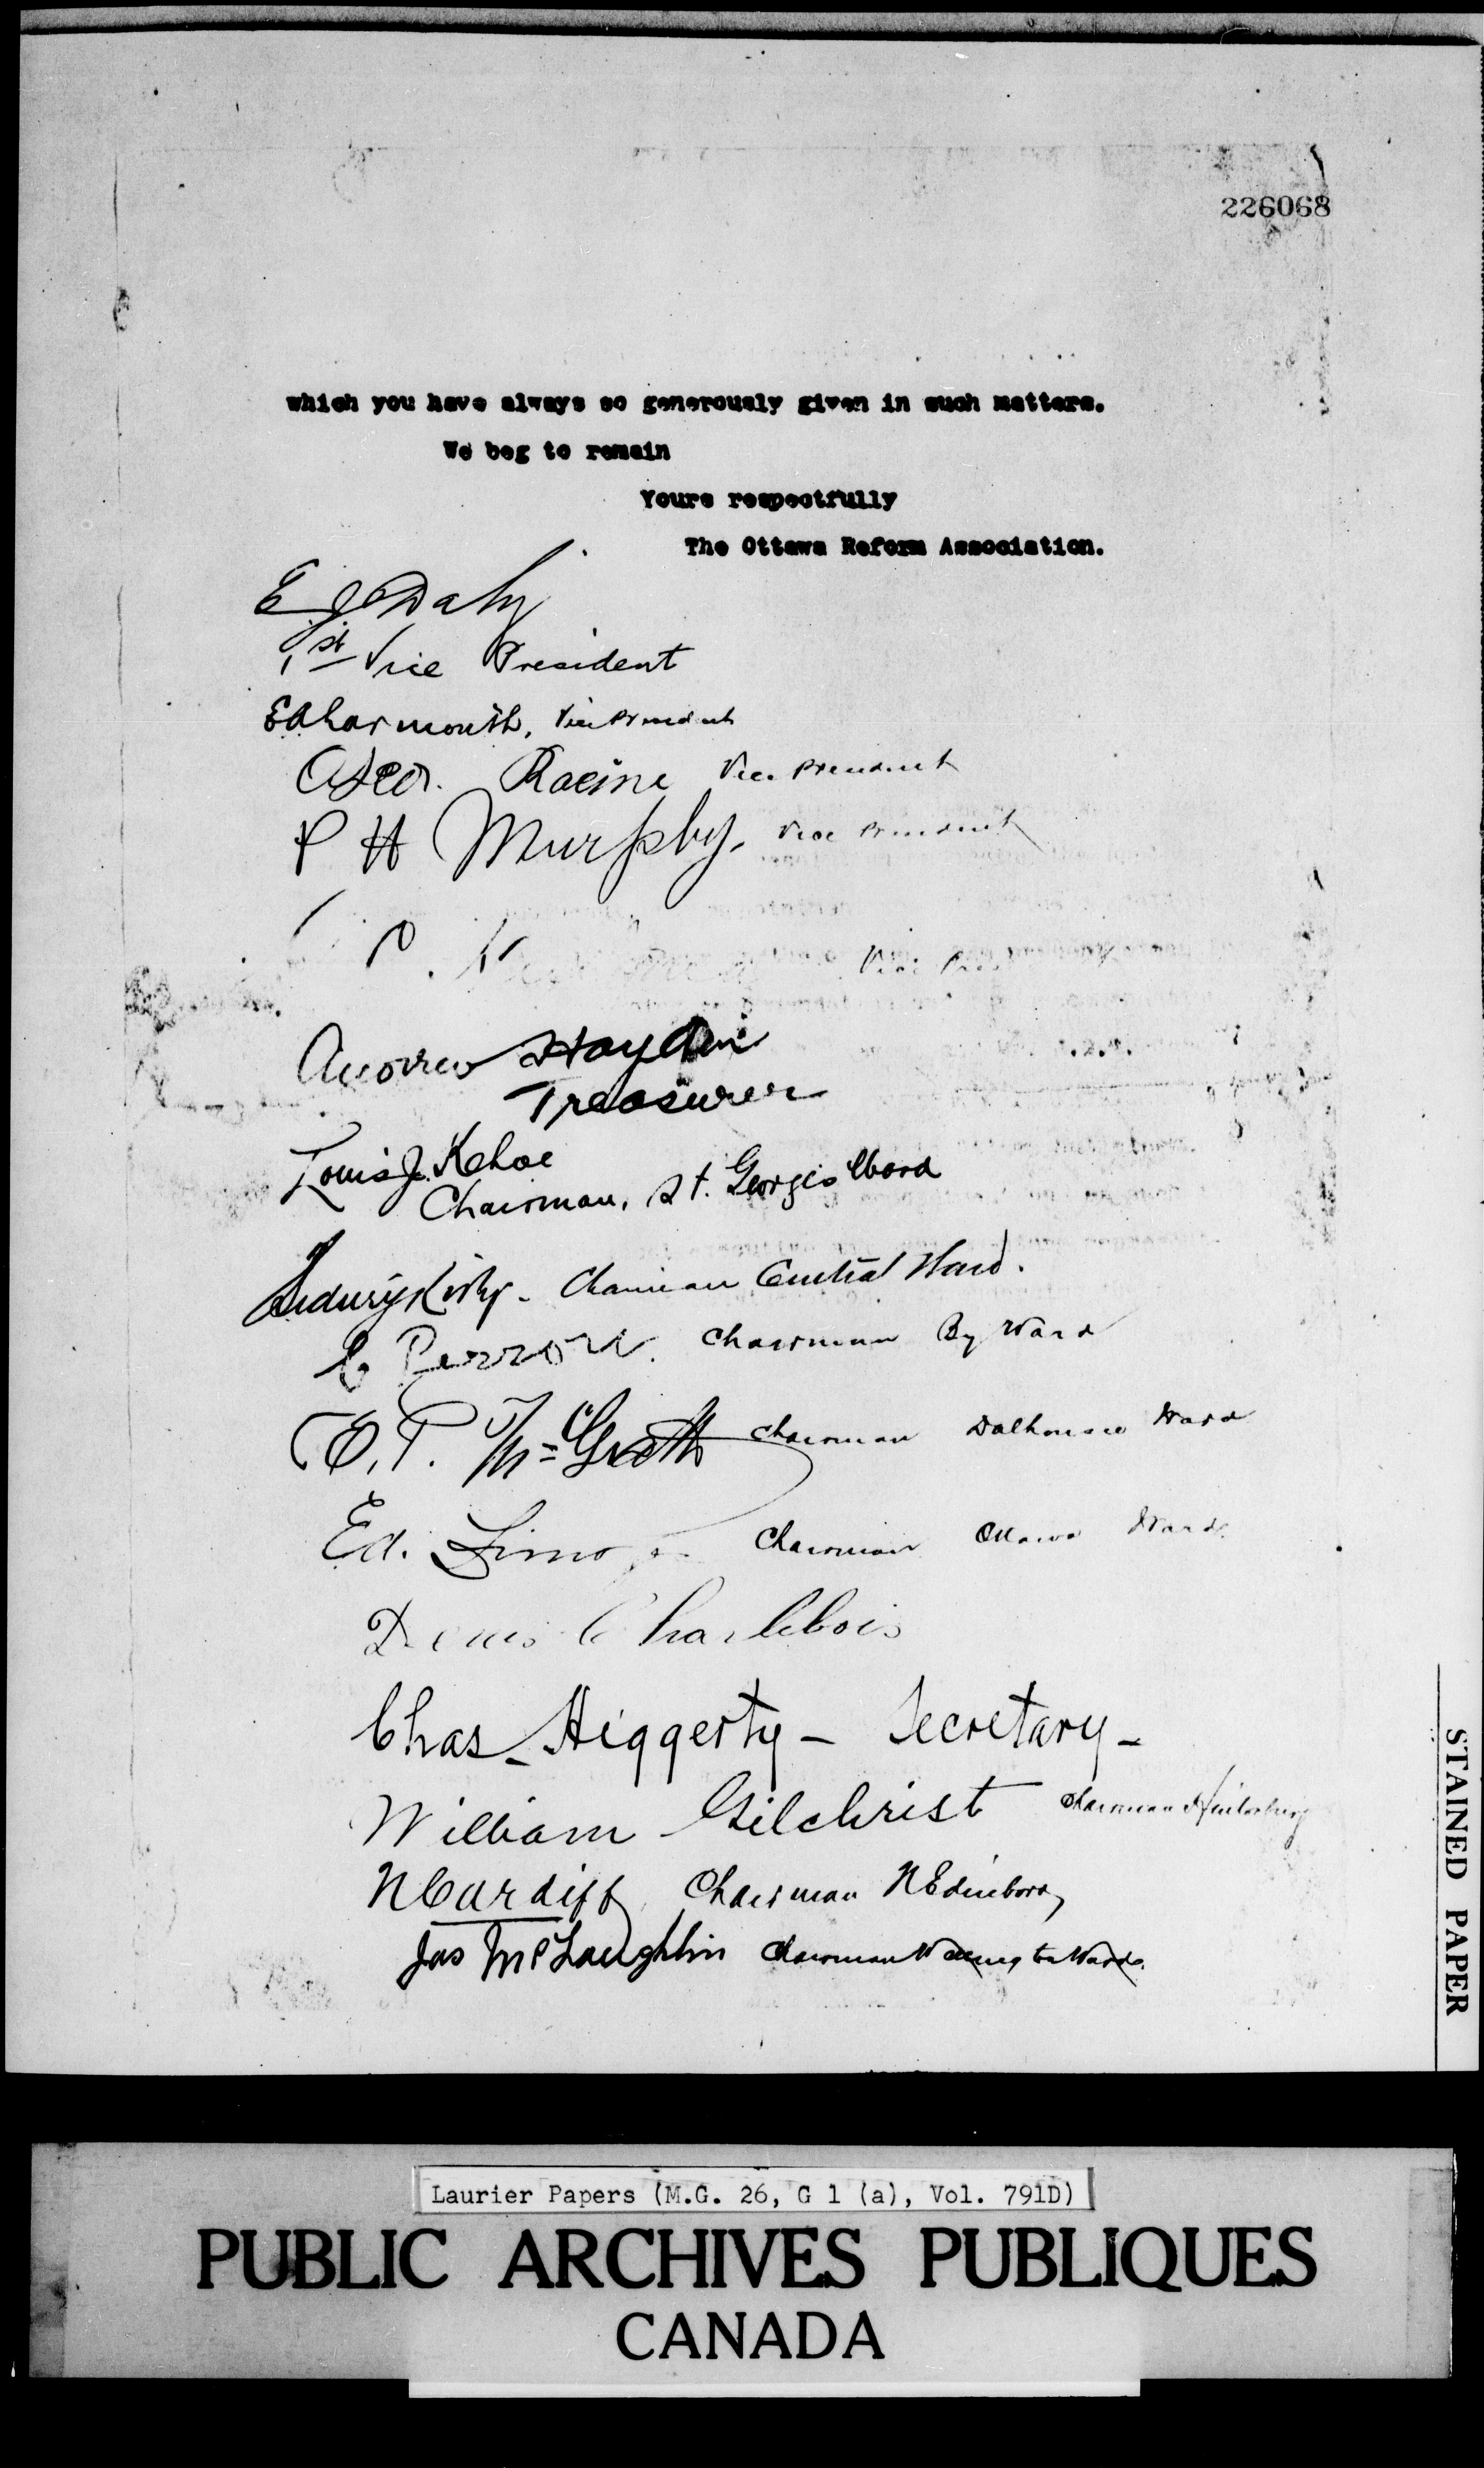 226068
which you have always so generously given in such matters.
We beg to remain
Yours respectfully
The Ottawa Reform Association.
E J Daly
1st Vice President
Vice President
Racine Vice President
P H Murphy. Vice President
Vice Pres
Andrew Haydon
Treasurer
Louis J. Kehoe
Chairman, St. Georges Ward
Chairman Central Ward.
Chairman By Ward
McGrath Chairman Dalhousie Ward
Ed. Chairman Ottawa Ward
Denis Charlebois
Chas. Higgerty - Secretary -
William Gilchrist Chairman Hintonburg
N Cardiff Chairman N Edinboro
Jas McLaughlin Chairman Wellington Ward.
STAINED PAPER
Laurier Papers (M.G. 26, G 1 (a), Vol. 791D)
PUBLIC ARCHIVES PUBLIQUES
CANADA